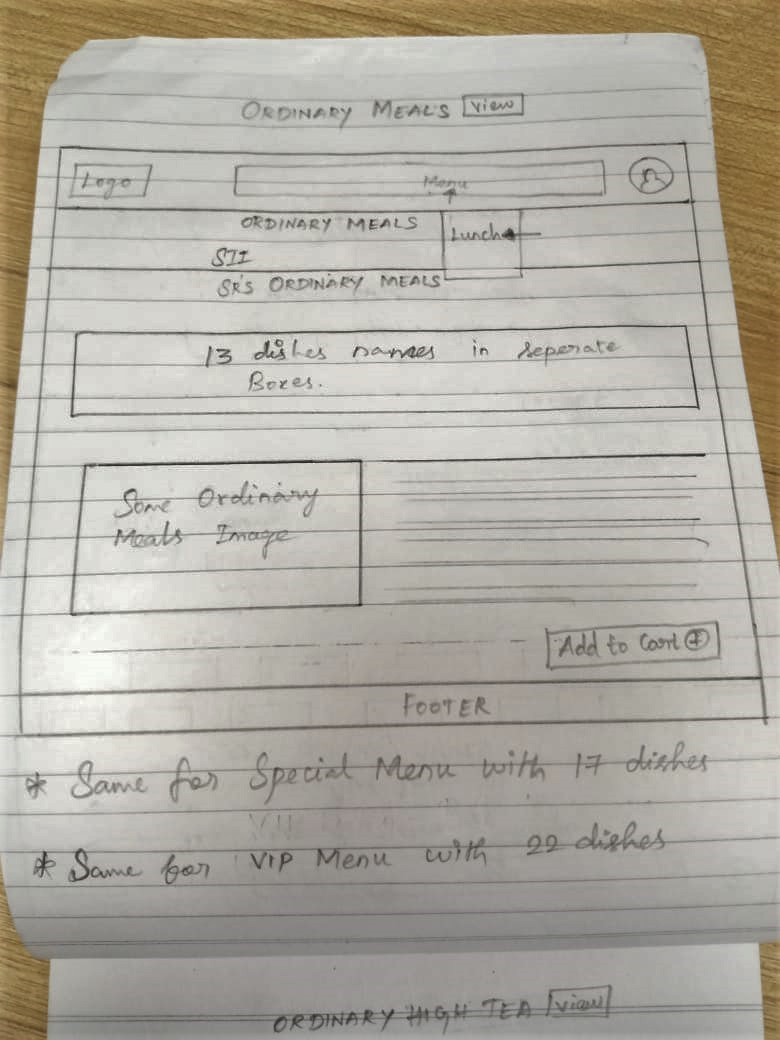 ORDINARY MEALS view
Logo
Menu
ORDINARY MEALS
Lunch
SR'S ORDINARY MEALS
13 dishes names in seperate
Boxes.
Some Ordinary
Meals Image
Add to Cart +
FOOTER
* Same for Special Menu with 17 dishes
* Same for VIP Menu with 22 dishes
ORDINARY HIGH TEA view